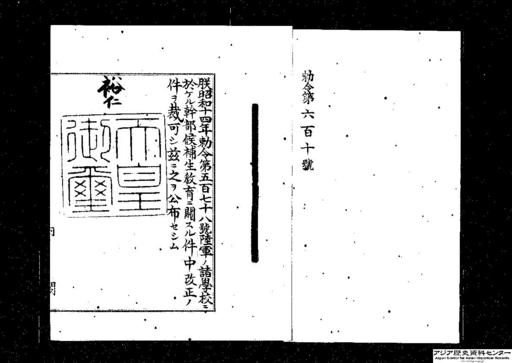 勅令第六百十號
朕昭和十四年勅令第五百七十八號陸軍ノ諸學校ニ
於ケル幹部候補生敎育ニ關スル件中改正ノ
件ヲ裁可シ茲ニ之ヲ公布セシム
裕仁
天皇
御璽
内閣
アジア歴史資料センター
Japan Center for Asian Historical Records